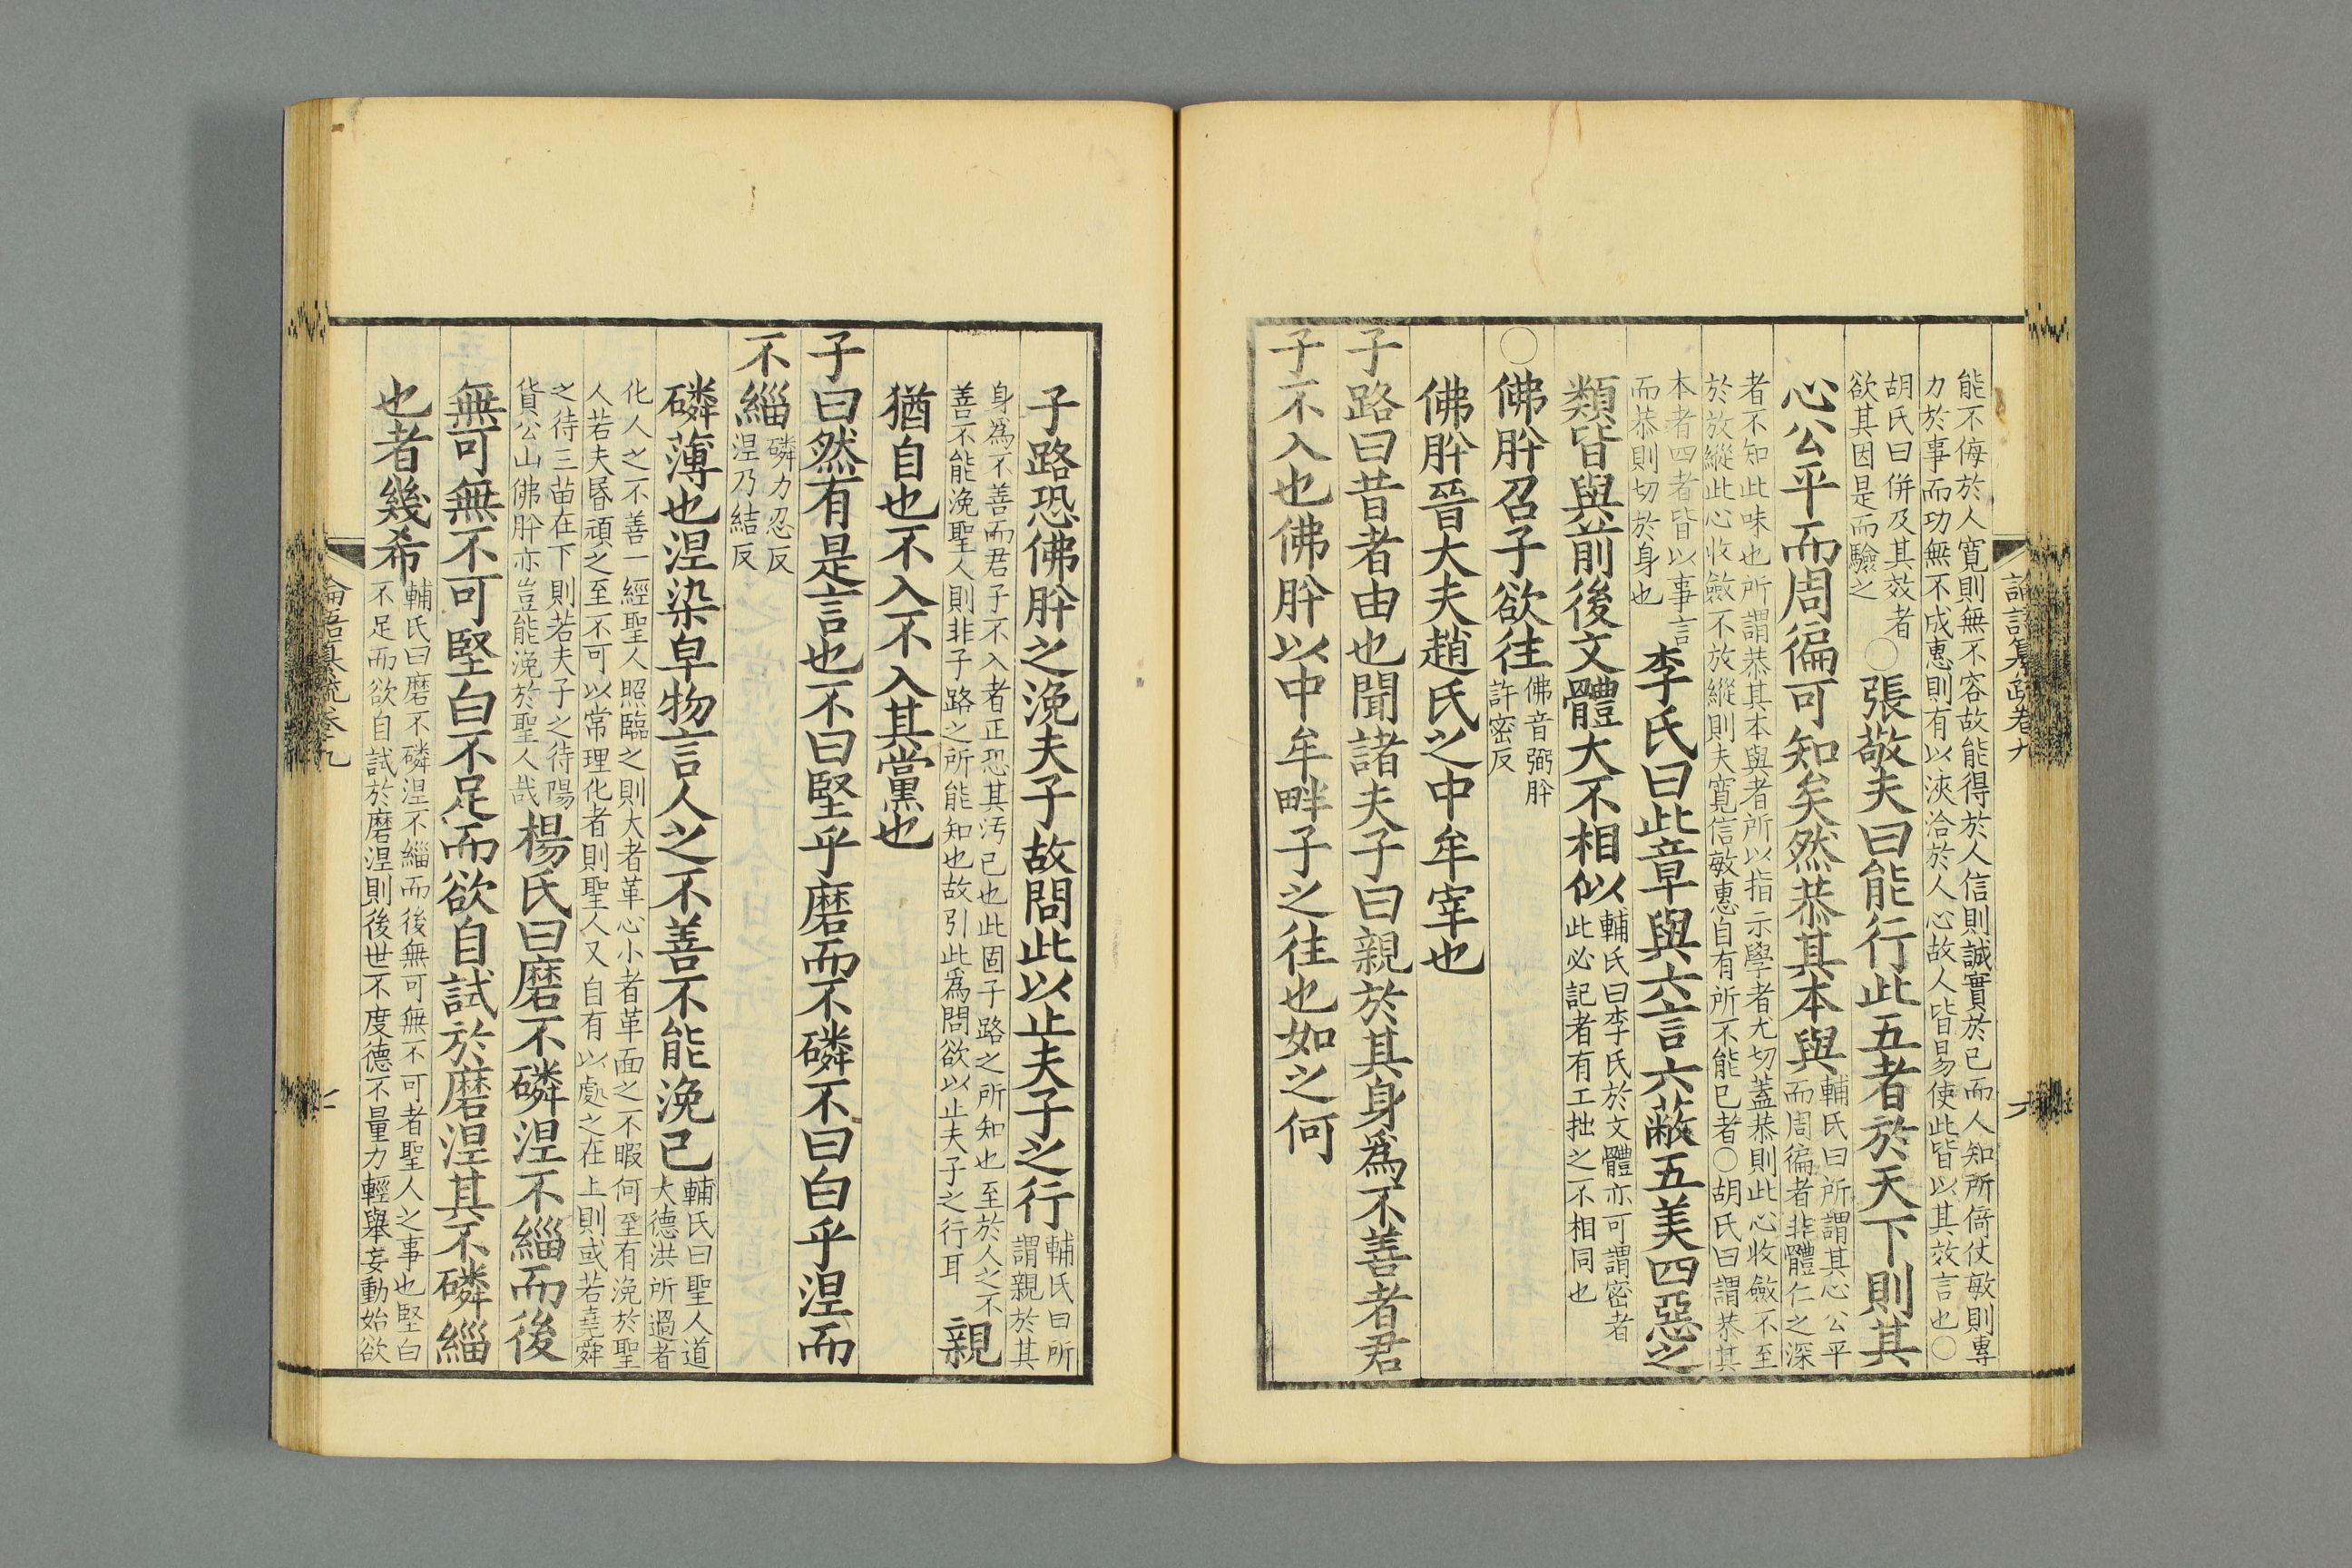 能不侮於人寬則無不容故能得於人信則誠實於已而人知所倚仗敏則專
力於事而功無不成惠則有以浹洽於人心故人皆易使此皆以其效言也〇
胡氏曰併及其效者
欲其因是而驗之
〇張敬夫曰能行此五者於天下則其
心公平而周徧可知矣然恭其本與
輔氏曰所謂其心公平
而周徧者非體仁之深
者不知此味也所謂恭其本與者所以指示學者尤切蓋恭則此心收斂不至
於放縱此心收斂不放縱則夫寬信敏惠自有所不能已者〇胡氏曰謂恭其
本者四者皆以事言
而恭則切於身也
李氏曰此章與六言六蔽五美四惡之
類皆與前後文體大不相似
輔氏曰李氏於文體亦可謂密者
此必記者有工拙之不相同也
〇佛肸召子欲往
佛音弼肸
許密反
佛肸晉大夫趙氏之中牟宰也
子路曰昔者由也聞諸夫子曰親於其身爲不善者君
子不入也佛肸以中牟畔子之往也如之何
論語纂疏卷九
子路恐佛肸之浼夫子故問此以止夫子之行
輔氏曰所
謂親於其
身爲不善而君子不入者正恐其汚已也此固子路之所知也至於人之不
善不能浼聖人則非子路之所能知也故引此爲問欲以止夫子之行耳
親
猶自也不入不入其黨也
子曰然有是言也不曰堅乎磨而不磷不曰白乎涅而
不緇
磷力忍反
涅乃結反
磷薄也涅染皁物言人之不善不能浼已
輔氏曰聖人道
大德洪所過者
化人之不善一經聖人照臨之則大者革心小者革面之不暇何至有浼於聖
人若夫昬頑之至不可以常理化者則聖人又自有以處之在上則或若堯舜
之待三苗在下則若夫子之待陽
貨公山佛肸亦豈能浼於聖人哉
楊氏曰磨不磷涅不緇而後
無可無不可堅白不足而欲自試於磨涅其不磷緇
也者幾希
輔氏曰磨不磷涅不緇而後無可無不可者聖人之事也堅白
不足而欲自試於磨涅則後世不度德不量力輕舉妄動始欲
論語纂疏卷九